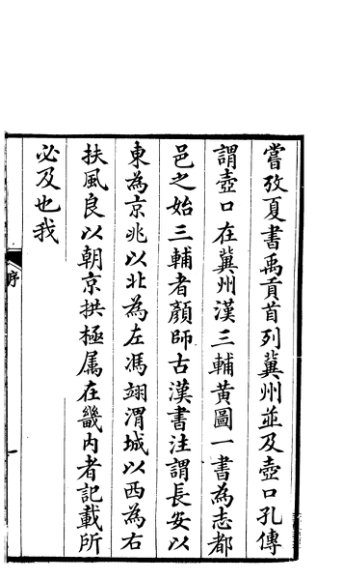 嘗攷夏書禹貢首列冀州並及壺口孔傳
謂壺口在冀州漢三輔黃圖一書為志都
邑之始三輔者顏師古漢書注謂長安以
東為京兆以北為左馮翊渭城以西為右
扶風良以朝京拱極屬在畿內者記載所
必及也我
序
一